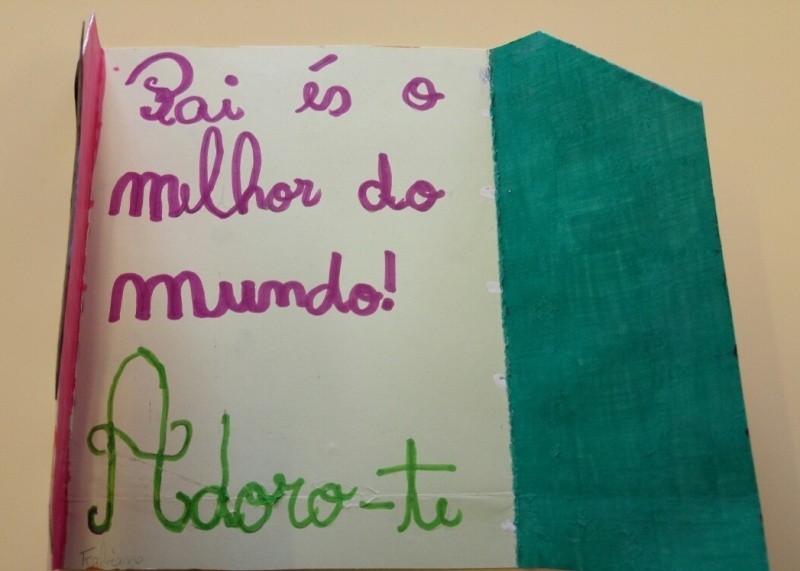 Pai és o
melhor do
mundo!
Adoro-te
Fabiano